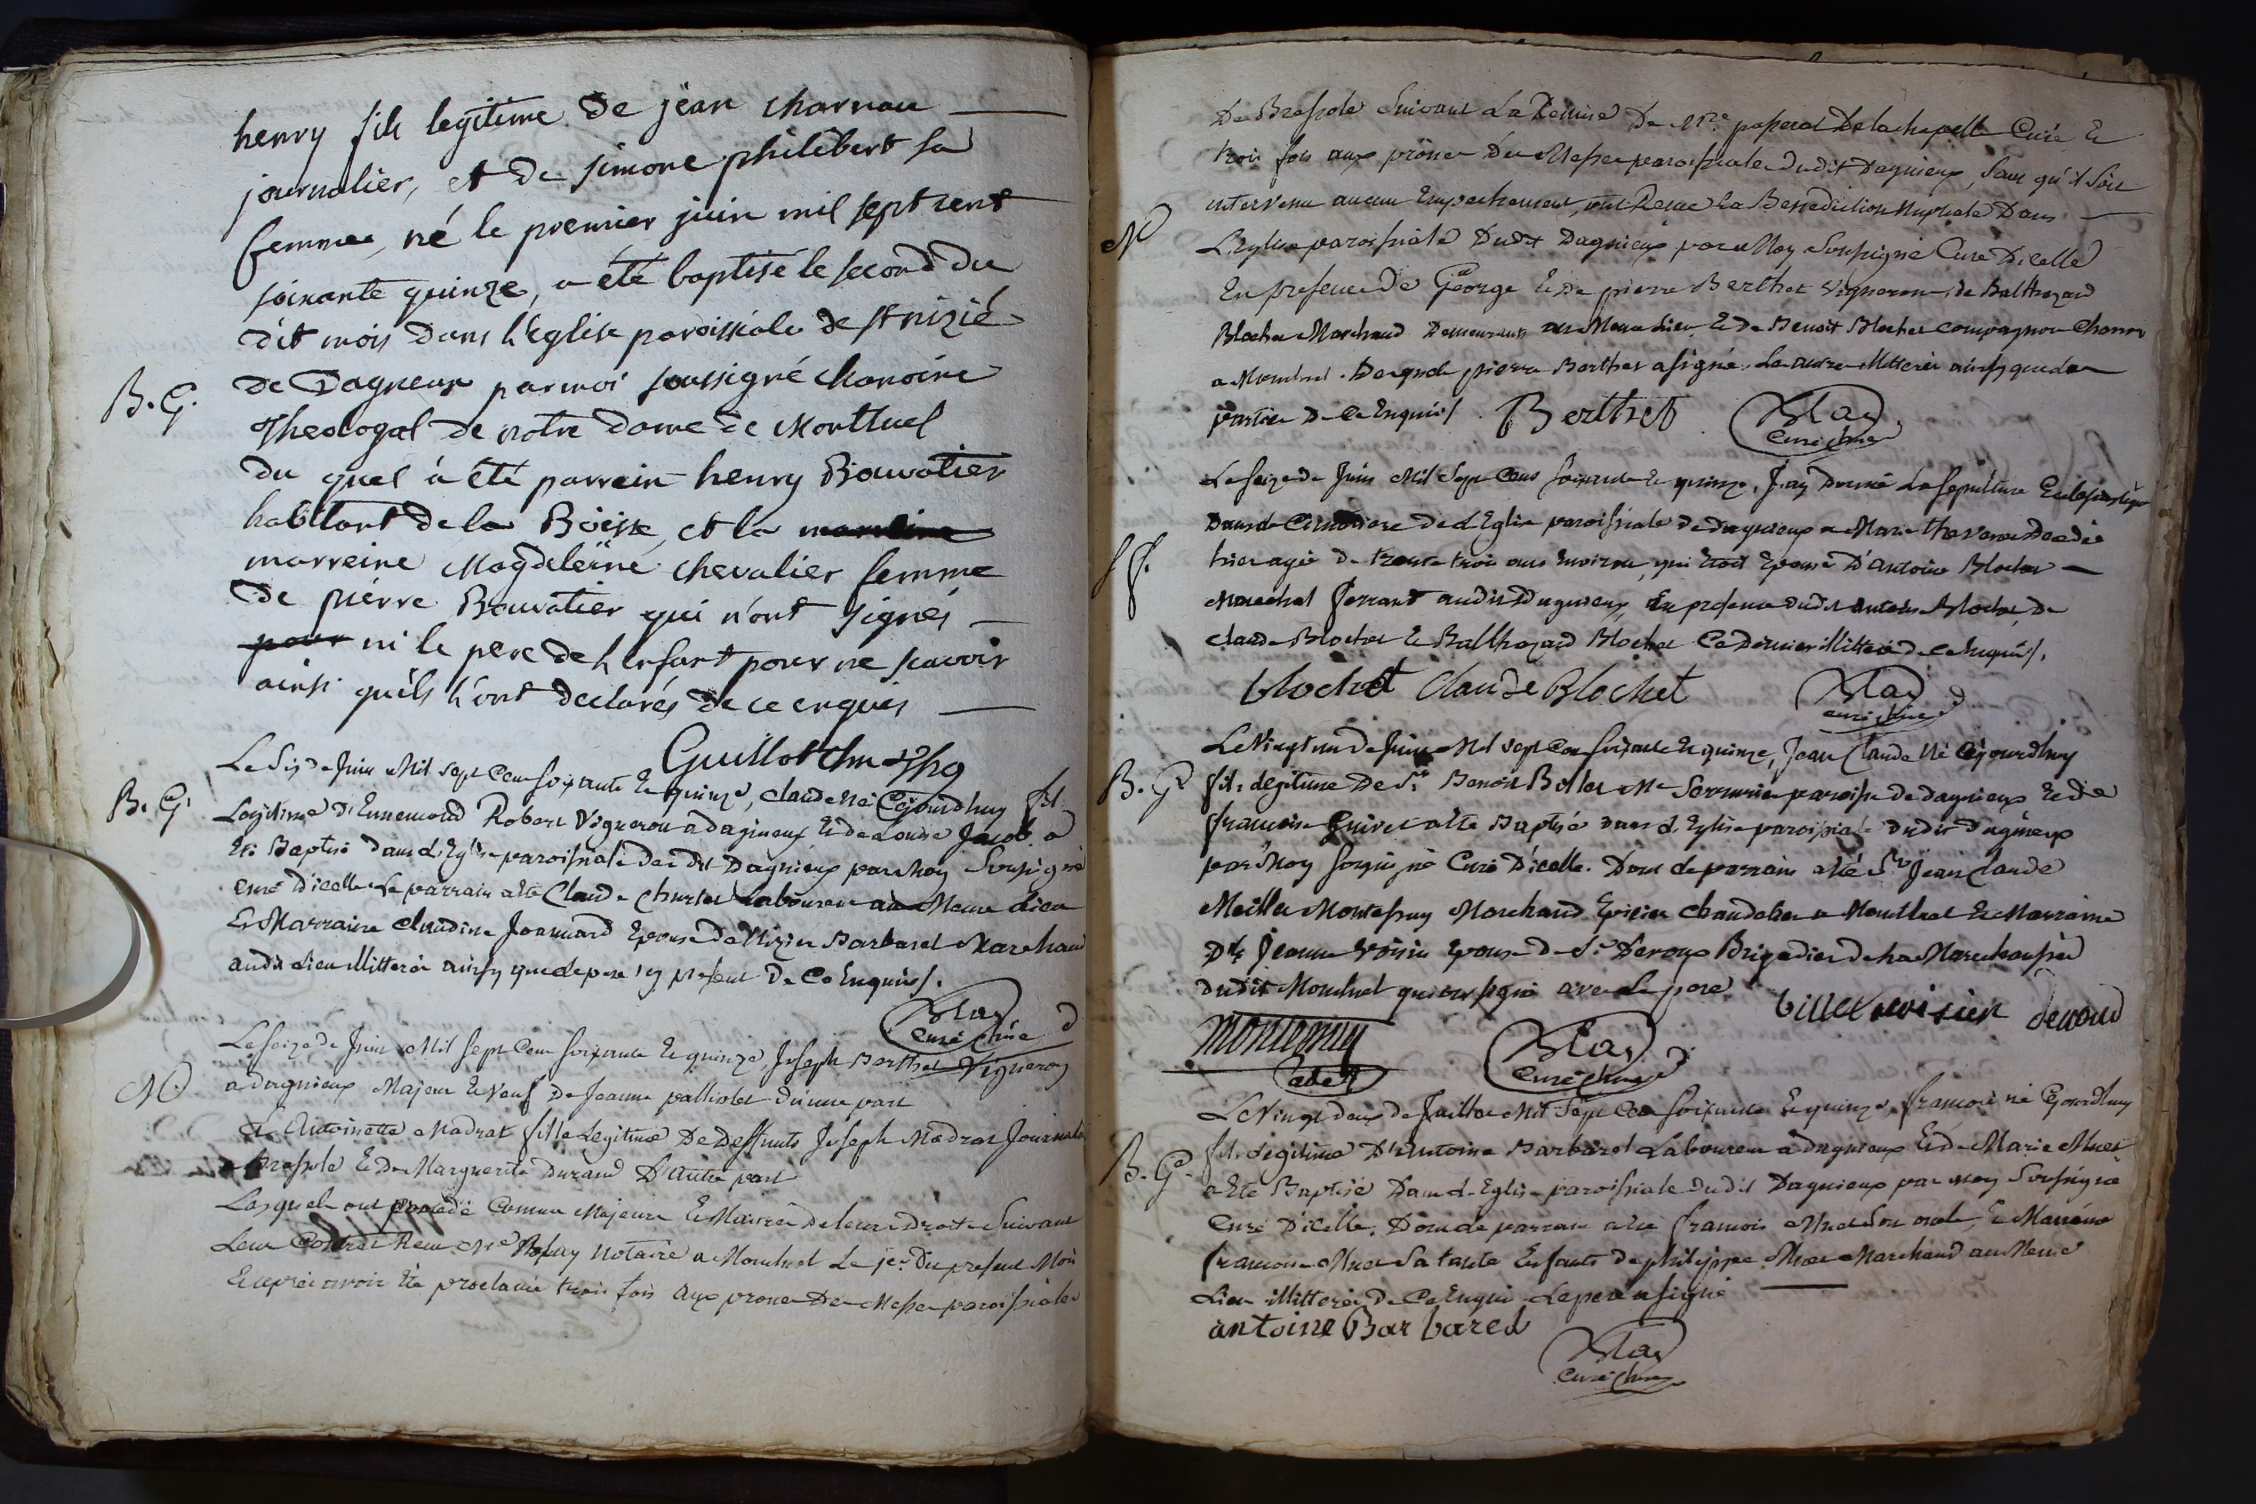 henry fils legitime de jean charnau
journalier, et de simone philibert sa
femme, né le premier juin mil sept cent
soixante quinze, a été baptisé le second du
dit mois dans l'eglise paroissiale de st nizié
B. G. de Dagneux par moi soussigné chanoine
Theologal de notre dame de Montluel
du quel à été parrein henry Bouvatier
habitant de la Boisse, et la marreine
marreine Magdeleine chevalier femme
de pierre Bouvatier qui n'ont signés
pour ni le pere de l'enfant pour ne scavoir
ainsi qu'ils l'ont declarés de ce enquis
Guillot
Le Six de Juin Mil Sept Cens Soixante Et quinze, Claude né Cejourdhuy fils
B. G. Legitime d'Ennemond Robert Vigneron a dagnieux Et de Jacob a
Eté Baptisé dans L'Eglise paroissiale du dit Dagnieux par Moy Soussigné
Curé D'icelle Le parrain a été Claude Laboureur au Meme Lieu
Et Marraine Claudine Joannard Epouse de Nizier Barbaret Marchand
audit Lieu illitterés ainsy que le pere icy present De Ce Enquis.
Blas
Curé
Le Seize de Juin Mil Sept Cens Soixante Et quinze Joseph Berthet Vigneron
M. a dagnieux Majeur Et Veuf De Jeanne d'une part
Et Antoinette Madrat fille Legitime De Deffunts Joseph Madrat Journalier
a Bressole Et De Marguerite Durand D'autre part
Lesquels ont procédé Comme Majeurs Et Maitres De leurs Droits Suivant
Leur Contrat Reçu Me Notaire a Montluel Le 1er Du present Mois
Et après avoir été proclamés trois fois aux prones Des Messes paroissiales
De Bressole Suivant La Remise De Mre De la chapelle Curé, Et
trois fois aux prônes Des Messes paroissiales Dudit Dagnieux, Sans qu'il Soit
intervenu aucun Empechement, ont Reçue La Benediction Nuptiale Dans
M L'Eglise paroissiale Dudit Dagnieux par Moy Soussigné Curé D'icelle
En presence De George Et De pierre Berthet Vignerons, de Balthazard
Blochet Marchand Demeurants au Meme Lieu Et De Benoit Blochet compagnon
a Montluel. Desquels pierre Berthet a signé, Les autres illitterés ainsy que les
parties De Ce Enquis. Berthet Blas
Curé
Le Seize de Juin Mil Sept Cens Soixante Et quinze, J'ay Donné La Sepulture Eclesiastique
Dans Le Cimetiere de L'Eglise paroissiale de Dagnieux a Marie decedée
hier agée de trente trois ans Environ, qui Etoit Epouse D'antoine Blochet
Marechal ferrant audit Dagnieux, En presence dudit antoine Blochet, De
Claude Blochet Et Balthazard Blochet Ce Dernier illitteré de ce Enquis.
blochet Claude Blochet Blas
Curé
Le Vingt un de Juin Mil Sept Cens Soixante Et quinze, Jean Claude Né Cejourdhuy
B. G. fils Legitime De Sr Benoit Billet Me Serrurier paroisse de Dagnieux Et de
francoise a été Baptisé Dans L'Eglise paroissiale Dudit Dagnieux
par Moy Soussigné Curé D'icelle. Dont Le parrain a été Sr Jean Claude
Montessuy Marchand Epicier Chandelier a Montluel Et Marraine
Dlle Jeanne Voisin Epouse de Sr Deroux Brigadier de la Marechaussée
dudit Montluel qui ont signé avec Le pere. billet voisin deroud
Montessuy
Cadet Blas
Curé
Le Vingt deux de Juillet Mil Sept Cens Soixante Et quinze, francois né Cejourdhuy
B. G. fils Legitime D'Antoine Barbaret Laboureur a Dagnieux Et De Marie
a Eté Baptisé Dans L'Eglise paroissiale Dudit Dagnieux par Moy Soussigné
Curé D'icelle, Dont Le parrain a été francois Son oncle, Et Marraine
francoise Sa tante Enfants de philippe Marchand au Meme
Lieu illitterés De Ce Enquis Le pere a Signé
antoine Barbared
Blas
Curé